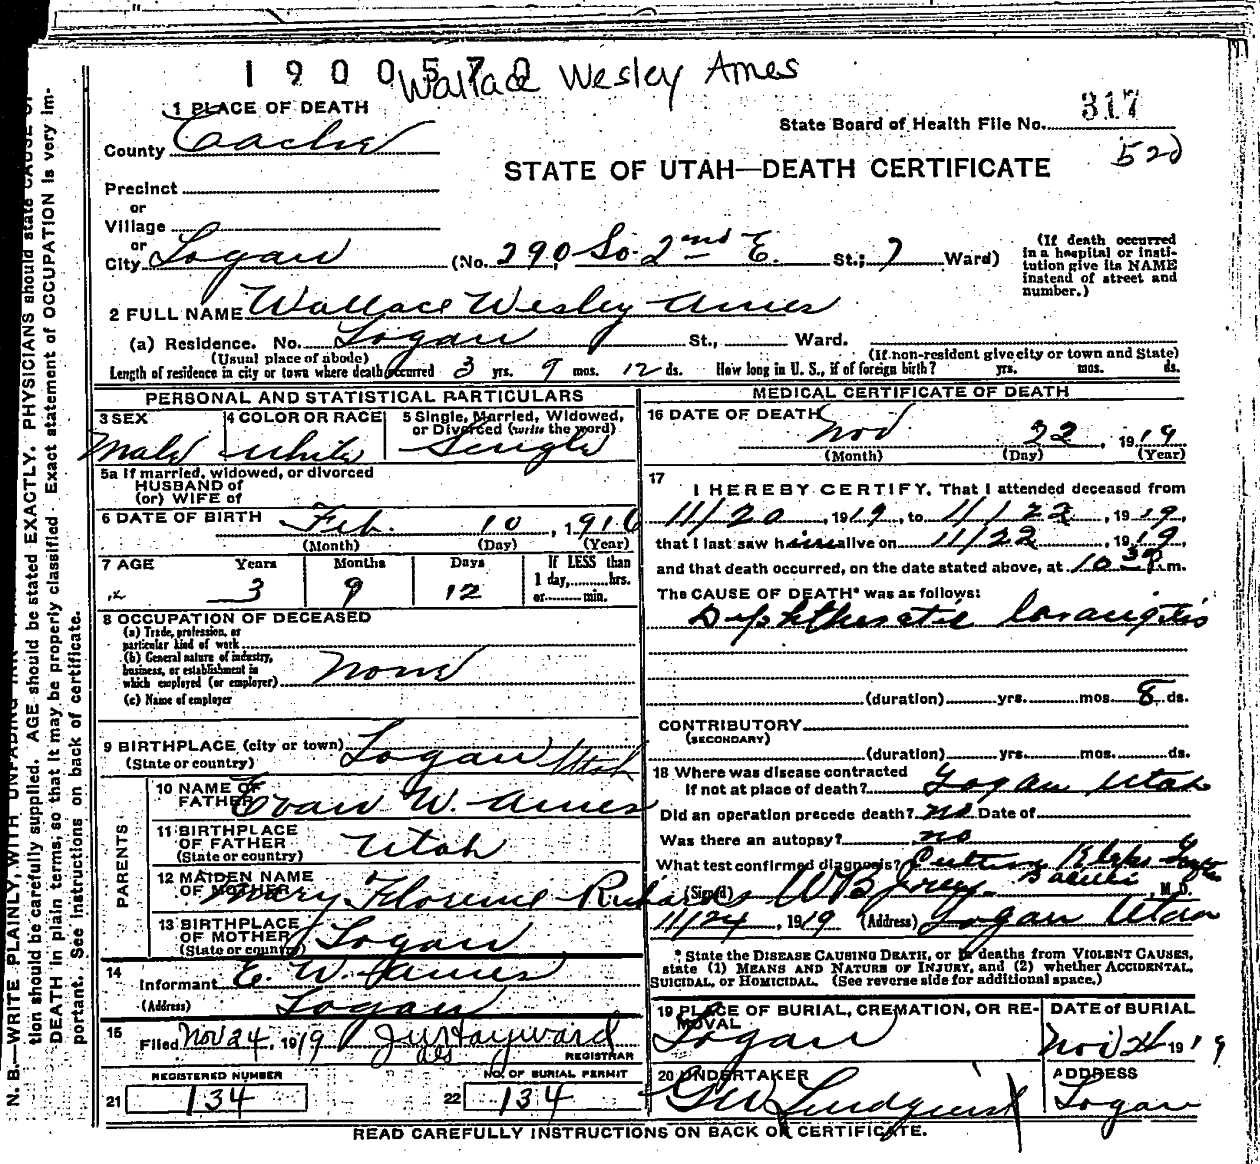 1900570
Wallace Wesley Ames
1 PLACE OF DEATH
County Cache
State Board of Health File No. 317
520
STATE OF UTAH—DEATH CERTIFICATE
Precinct
or
Village
or
City Logan (No. 290 So 2nd E. St.; 7 Ward)
(If death occurred in a hospital or insti-
tution give its NAME
instead of street and
number.)
2 FULL NAME Wallace Wesley Ames
(a) Residence. No. Logan St., Ward.
(Usual place of abode) (If non-resident give city or town and State)
Length of residence in city or town where death occurred 3 yrs. 9 mos. 12 ds. How long in U. S., if of foreign birth? yrs. mos. ds.
PERSONAL AND STATISTICAL PARTICULARS
3 SEX
Male
4 COLOR OR RACE
White
5 Single, Married, Widowed,
or Divorced (write the word)
Single
5a If married, widowed, or divorced
HUSBAND of
(or) WIFE of
6 DATE OF BIRTH Feb. 10, 1916
(Month) (Day) (Year)
7 AGE Years Months Days If LESS than
1 day, hrs.
or min.
3 9 12
8 OCCUPATION OF DECEASED
(a) Trade, profession, or
particular kind of work
(b) General nature of industry,
business, or establishment in
which employed (or employer) None
(c) Name of employer
9 BIRTHPLACE (city or town) Logan Utah
(State or country)
PARENTS
10 NAME OF
FATHER Evan W. Ames
11 BIRTHPLACE
OF FATHER Utah
(State or country)
12 MAIDEN NAME
OF MOTHER Mary Florence Richards
13 BIRTHPLACE
OF MOTHER Logan
(State or country)
14
Informant E. W. Ames
(Address) Logan
15
Filed Nov 24, 1919 Hayward
REGISTRAR
REGISTERED NUMBER
21 134
NO. OF BURIAL PERMIT
22 134
MEDICAL CERTIFICATE OF DEATH
16 DATE OF DEATH
Nov 22, 1919
(Month) (Day) (Year)
17
I HEREBY CERTIFY, That I attended deceased from
11/20, 1919, to 11/22, 1919,
that I last saw him alive on 11/22, 1919,
and that death occurred, on the date stated above, at 10 30 P m.
The CAUSE OF DEATH* was as follows:
Diphtheretic larangitis
(duration) yrs. mos. 8 ds.
CONTRIBUTORY
(SECONDARY)
(duration) yrs. mos. ds.
18 Where was disease contracted
If not at place of death? Logan Utah
Did an operation precede death? no Date of
Was there an autopsy? no
What test confirmed diagnosis? Culture Klebs
Bacilli
(Signed) W B , M. D.
11/24, 1919 (Address) Logan Utah
* State the DISEASE CAUSING DEATH, or in deaths from VIOLENT CAUSES,
state (1) MEANS AND NATURE OF INJURY, and (2) whether ACCIDENTAL,
SUICIDAL, or HOMICIDAL. (See reverse side for additional space.)
19 PLACE OF BURIAL, CREMATION, OR RE-
MOVAL
Logan
DATE of BURIAL
Nov 24 1919
20 UNDERTAKER
G W Lindquist
ADDRESS
Logan
READ CAREFULLY INSTRUCTIONS ON BACK OF CERTIFICATE.
N. B.—WRITE PLAINLY, WITH UNFADING INK
tion should be carefully supplied. AGE should be stated EXACTLY. PHYSICIANS should state CAUSE OF
DEATH in plain terms, so that it may be properly classified. Exact statement of OCCUPATION is very im-
portant. See instructions on back of certificate.